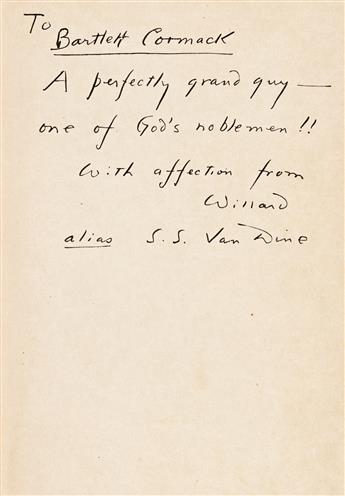 To
Bartlett Cormack
A perfectly grand guy —
one of God's noblemen!!
With affection from
Willard
alias S.S. Van Dine